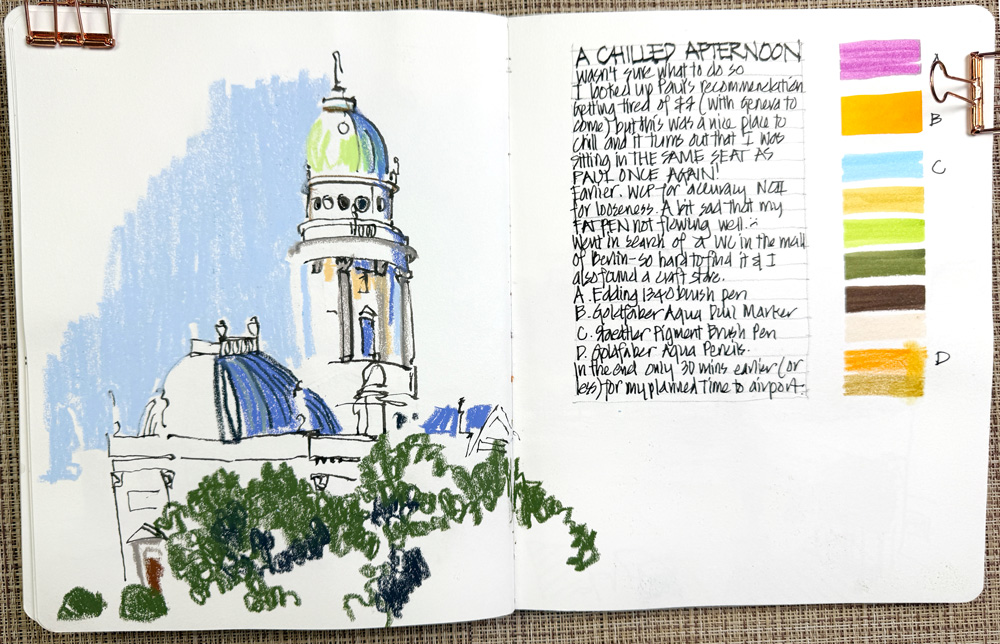 A CHILLED AFTERNOON
wasn't sure what to do so
I looked up Paul's recommendation
Getting tired of $$ (with Geneva to
come) but this was a nice place to
chill and it turns out that I was
sitting in THE SAME SEAT AS
PAUL ONCE AGAIN!
Earlier. WCP for accuracy NCII
for looseness. A bit sad that my
FAT PEN not flowing well :(
Went in search of a WC in the mall
of Berlin-so hard to find it & I
also found a craft store.
A. Edding 1340 brush pen
B. Goldfaber Aqua Dual Marker
C. Staedtler Pigment Brush Pen
D. Goldfaber Aqua Pencils.
In the end only 30 mins earlier (or
less) for my planned time to airport.
A
B
C
D